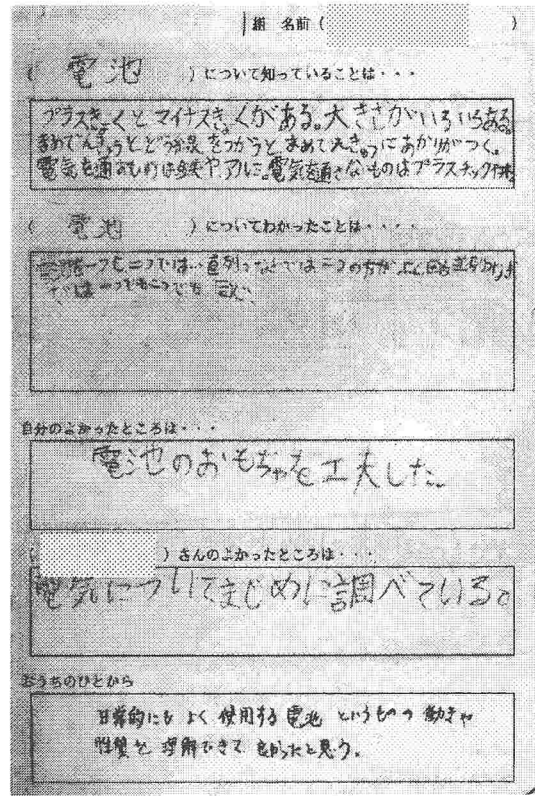 組 名前 ( )
( 電池 ) について知っていることは・・・
プラスきょくとマイナスきょくがある。大きさがいろいろある。
まめでんきゅうとどう線をつかうとまめでんきゅうにあかりがつく。
電気を通すものは鉄やアルミ。電気を通さないものはプラスチックや
( 電池 ) についてわかったことは・・・
一つと二つでは 直列つなぎでは二つの方が よく回る 並列つなぎ
では一つでも二つでも
自分のよかったところは・・・
電池のおもちゃを工夫した。
( ) さんのよかったところは・・・
電気についてまじめに調べている。
おうちのひとから
日常的にも よく 使用する 電池 というものの 働きや
性質を 理解できて 良かったと思う。